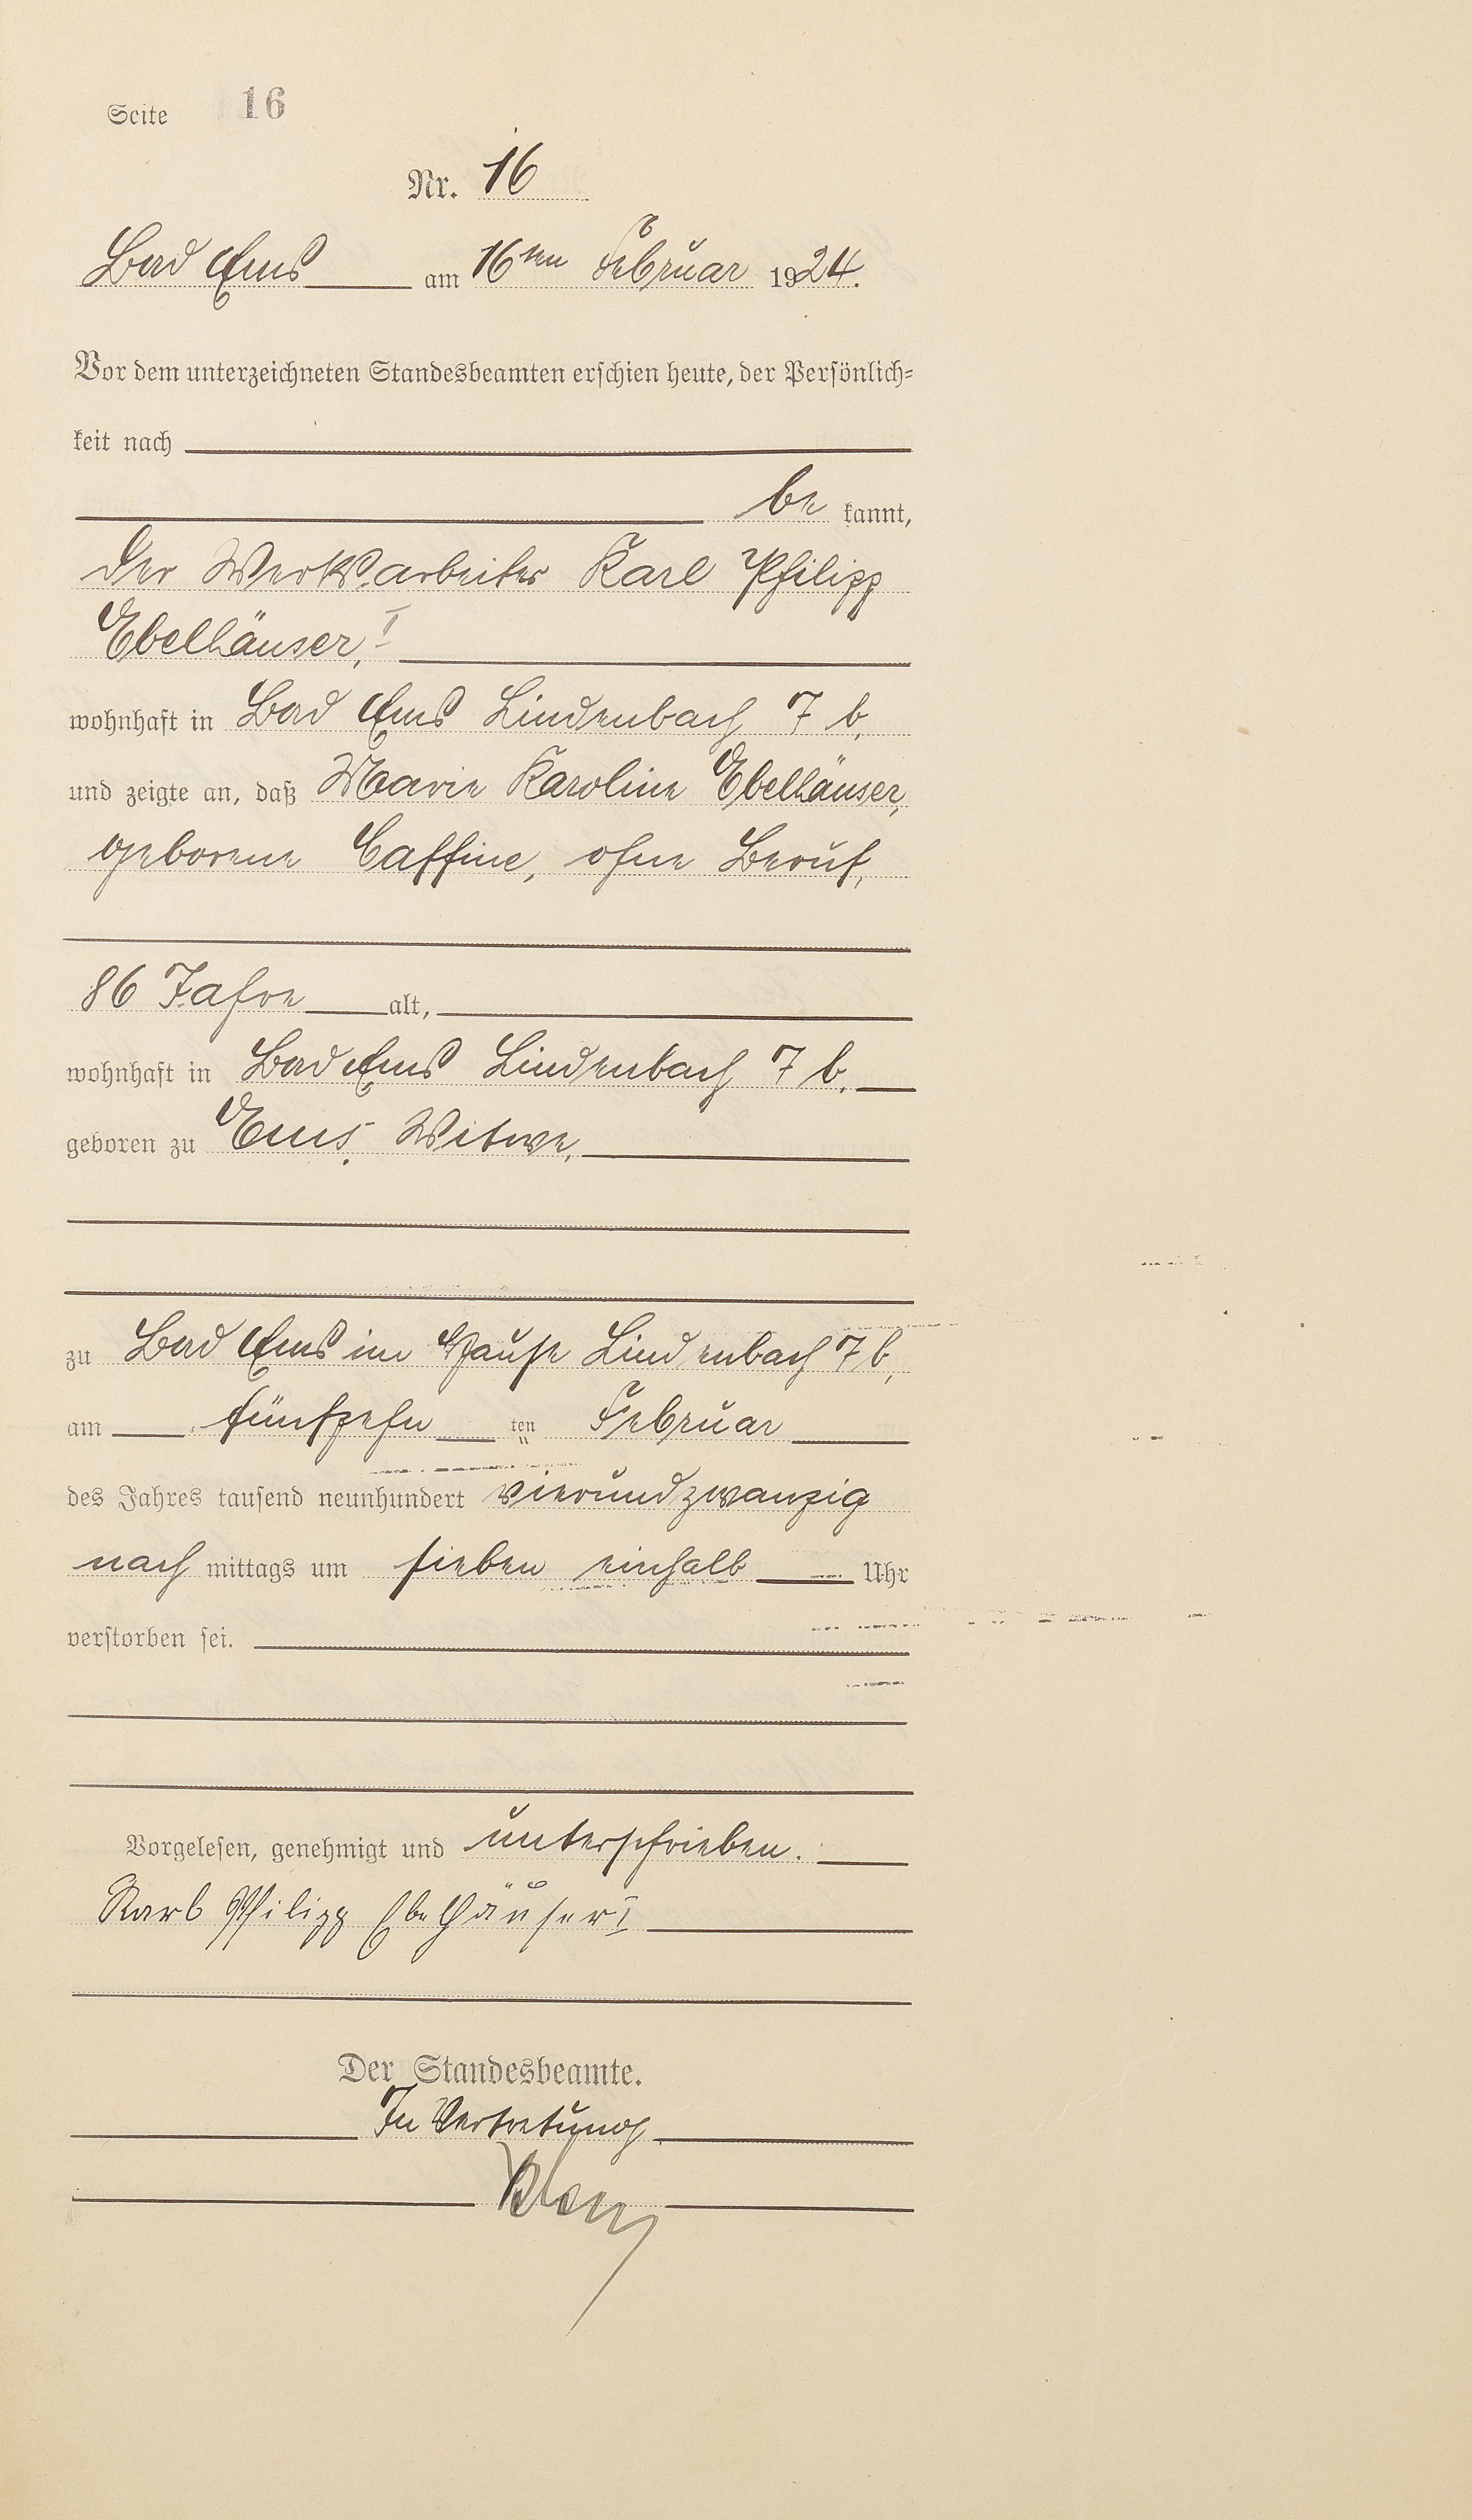 Seite 16
Nr. 16
Bad Ems am 16ten Februar 1924.
Vor dem unterzeichneten Standesbeamten erschien heute, der Persönlich-
keit nach
be kannt,
der Werksarbeiter Karl Philipp
Ebelhäuser, I
wohnhaft in Bad Ems Lindenbach 7 b,
und zeigte an, daß Marie Karoline Ebelhäuser,
geborene Caffine, ohne Beruf,
86 Jahre alt,
wohnhaft in Bad Ems Lindenbach 7 b,
geboren zu Ems, Witwe,
zu Bad Ems im Hause Lindenbach 7 b,
am fünfzehn ten Februar
des Jahres tausend neunhundert vierundzwanzig
nach mittags um sieben einhalb Uhr
verstorben sei.
Vorgelesen, genehmigt und unterschrieben.
Karl Philipp Ebelhäuser I
Der Standesbeamte.
In Vertretung